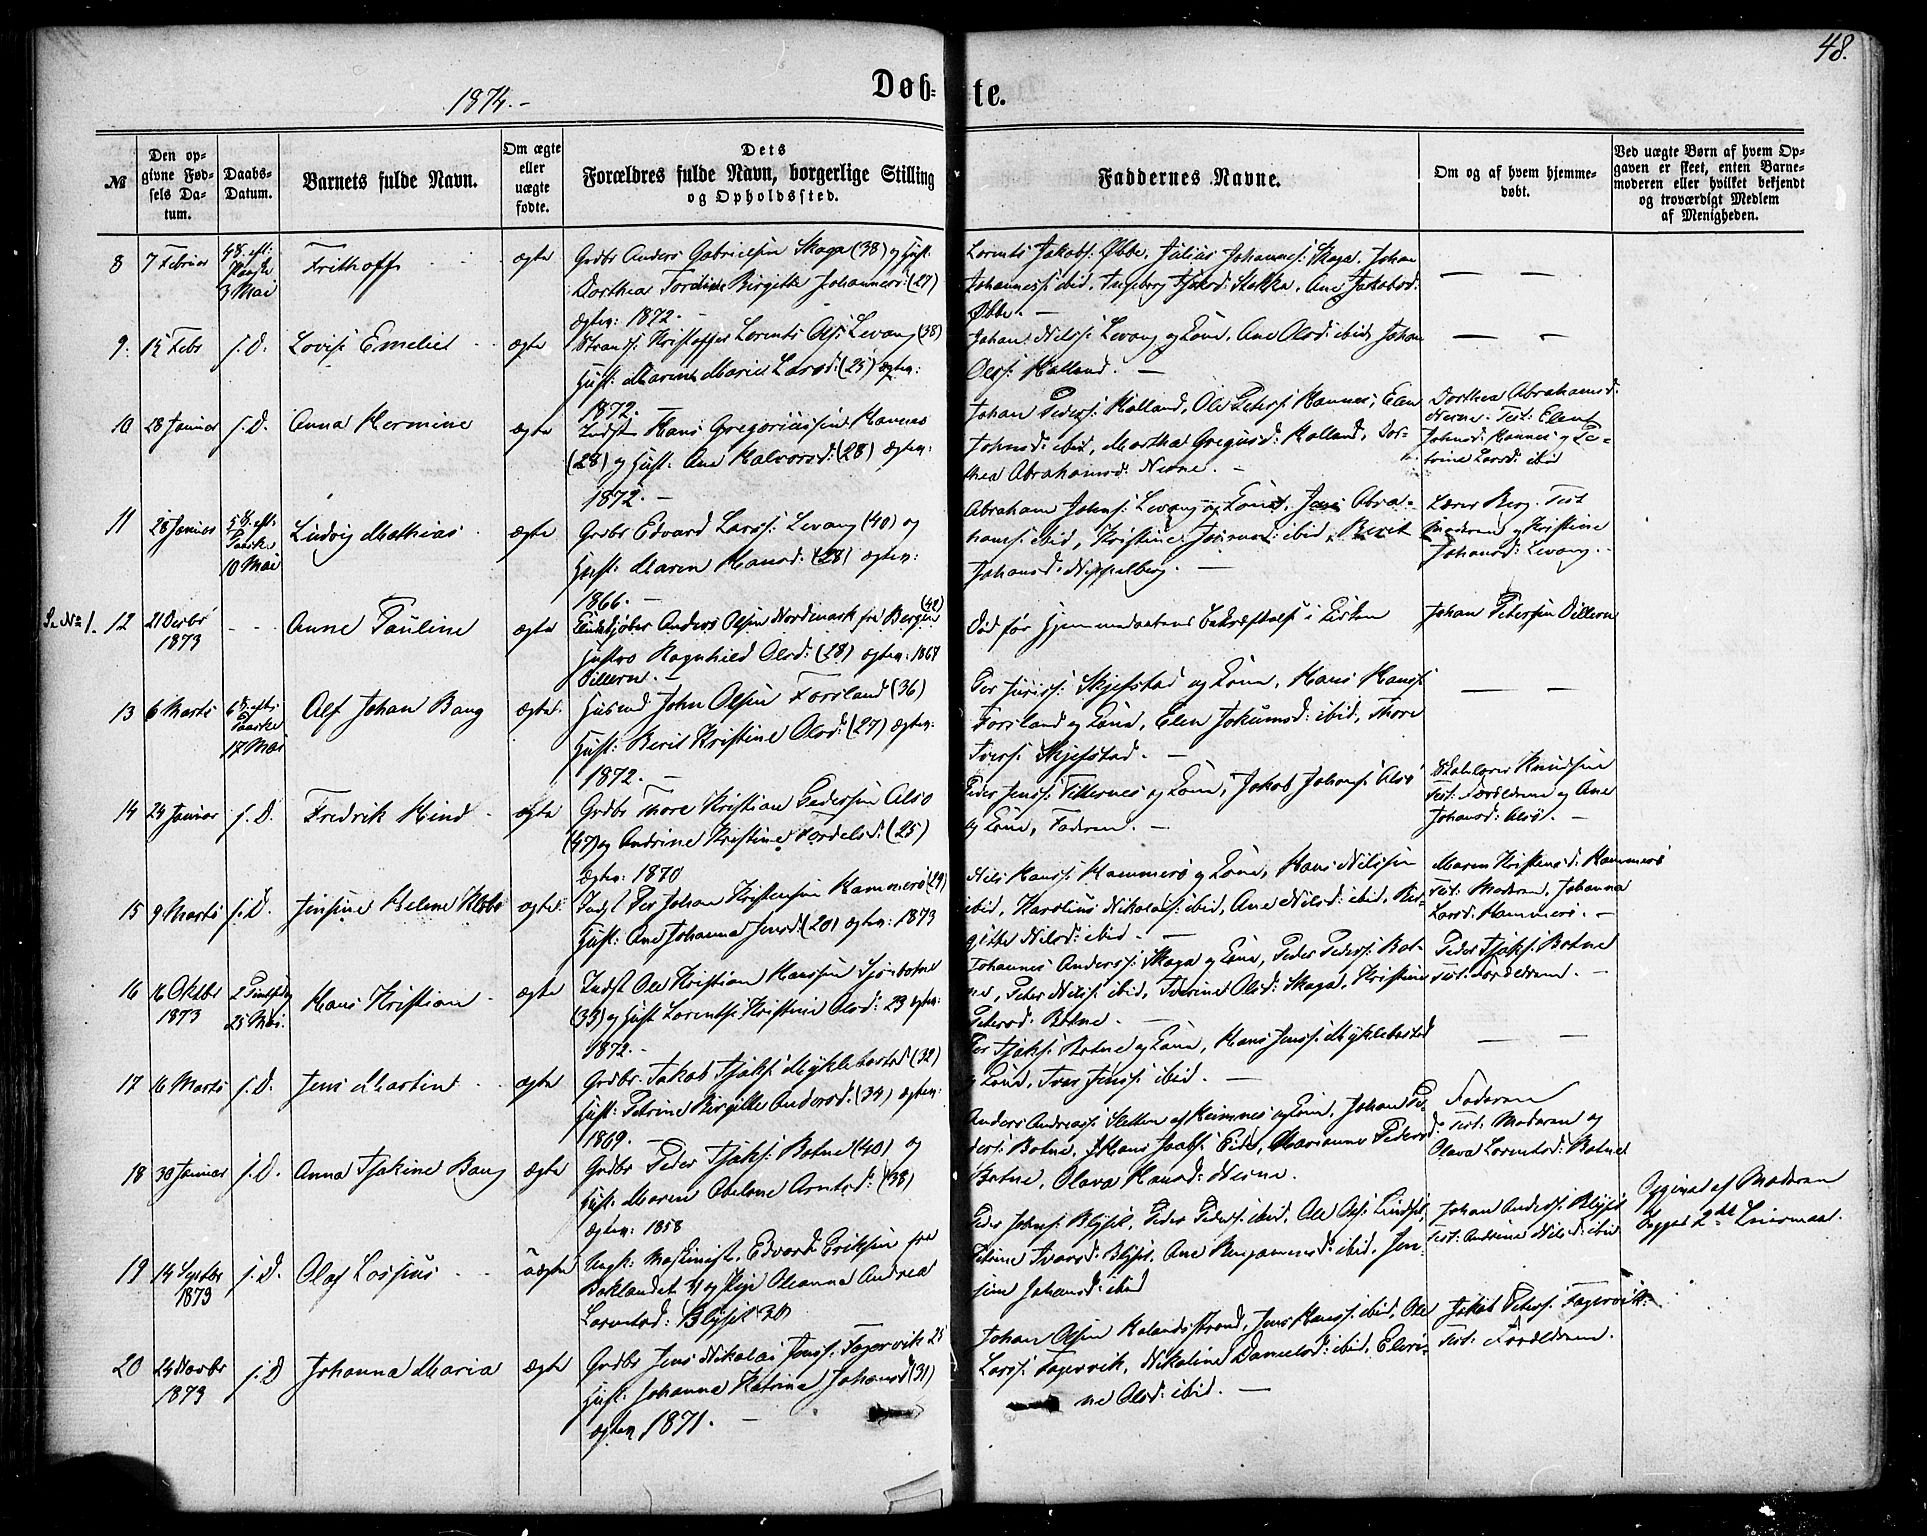 48.
1874.-
Døb-te.
№
Den op-
givne Fød-
sels Da-
tum.
Daabs-
Datum.
Barnets fulde Navn.
Om ægte
eller
uægte
fødte.
Dets
Forældres fulde Navn, borgerlige Stilling
og Opholdssted.
Faddernes Navne.
Om og af hvem hjemme-
døbt.
Ved uægte Børn af hvem Op-
gaven er skeet, enten Barne-
moderen eller hvilket bekjendt
og troværdigt Medlem
af Menigheden.
8 7 Februar 4 S. eft: Paaske 3 Mai Frithoff ægte
Grdbr Anders Gabrielsen Skaga (38) og Hust:
Dorthea Birgitte Johannesd: (27)
ægtev: 1872. -
Lorents Jakobs: Øbbe, Julius Johannes: Skaga, Johan
Johanness: ibid, Ingeborg Stokka, Ane Jakobsd:
Øbbe. -
9. 15 Febr s. D. Lovise Emelie ægte
Strands: Kristoffer Lorents Ols: Levang (38)
Hust: Maren Marie Larsd: (25) ægtev:
1872. -
Johan Nilss: Levang og Kone, Ane Olsd: ibid, Johan
Olss: Holland. -
10 28 Januar s. D. Anna Hermine ægte
Indst Hans Gregoriussen Hannes
(28) og Hust: Ane Halvorsd: (28) ægtev:
1872. -
Johan Peders: Holland, Ole Peters: Hannes, Elen
Johnsd: ibid, Marthe Gregusd: Holland, Dor-
thea Abrahamsd: Nesne. -
Dorthea Abrahamsd:
Nesne. Test: Elen
Johnsd: Hannes og Pe-
trine Larsd: ibid
11 28 Januar 5 S. eft: Paaske 10 Mai Ludvig Mathias ægte
Grdbr Edvard Larss: Levang (40) og
Hust: Maren Hansd: (28) ægtev:
1866. -
Abraham Johns: Levang og Kone, Jens Abra-
hams: ibid, Kristine ibid, Berit
Johansd:
Lærer Berg. Test
Moderen og Kristine
Johansd: Levang. -
Se No 1. 12 21 Decbr 1873 - - - Anne Pauline ægte
Anders Olsen Nordmark fra Bergen (42)
Hustro Ragnhild Olsd: (28) ægtev: 1867
Villern. -
Død før Hjemmedaabens Bekræftelse i Kirken
Johan Petersen Villern
13 6 Marts 6 S. eft: Paaske 17 Mai Alf Johan Bang ægte
Husmd John Olsen Forsland (36)
Hust: Berit Kristine Olsd: (27) ægtev:
1872. -
Per Skjefstad og Kone, Hans Hans:
Forsland og Kone, Elen Jokumsd: ibid, Thore
Ivers: Skjefstad. -
14 24 Januar s. D. Fredrik Hind ægte
Grdbr Thore Kristian Pedersen Alsø
(47) og Andrine Kristine (25)
ægtev: 1870
Peder Jenss: Tilternes og Kone, Jakob Johans: Alsø
og Kone, Faderen. -
Skolelærer Knudsen
Test: Forældrene og Ane
Johansd: Alsø. -
15 9 Marts s. D. Jensine Helene ægte
Indst Per Johan Kristensen Hammerø (29)
Hust: Ane Johanna Jensd: (20) ægtev: 1873
Nils Hanss: Hammerø og Kone, Hans Nilssen
ibid, Karolius Nikolais: ibid, Ane Nilsd: ibid, Bir-
gitte Nilsd: ibid. -
Maren Kristensd: Hammerø
Test: Moderen, Johanna
Larsd: Hammerø. -
16 16 Oktbr 1873 2 Pintsedag 25 Mai. Hans Kristian ægte
Indst Ole Kristian Hanssen Sjøbotne
(33) og Hust Lorentse Kristine Olsd: 23 ægtev:
1872. -
Johannes Anderss: Skaga og Kone, Peder Peders: Bot-
ne, Peter Nilss: ibid, Olsd: Skaga, Kristine
Petersd: Botne. -
Peder Tjoks: Botne
Test: Forældrene. -
17 16 Marts s. D. Jens Martin ægte
Grdbr. Jakob Tjoks: Myklebostad (32)
Hust: Petrine Birgitte Andersd: (34) ægtev:
1869. -
Per Tjoks: Botne og Kone, Hans Jenss: Myklebostad
og Kone, Iver Jenss: ibid. -
18 30 Januar s. D. Anna Tjokine Bang ægte
Grdbr Peder Tjoks: Botne (40) og
Hust: Maren Abelone Arntsd: (38)
ægtev: 1858
Anders Andreass: Sletten af Heimnes og Kone, Johan Pe-
ders: Botne, Hans Eide, Marianne Pedersd:
Botne, Olava Hansd: Nesne.
Faderen
Test: Moderen og
Olava Lorentsd: Botne
19 14 Septbr 1873 s. D. Olaf uægte
Ungk: Maskinist Edvard Eriksen fra
Baklandet og Pige Oleanna Andrea
Larsd: Blyseł 30
Peder Johns: Peder Peders: ibid, Ole Ols:
Petrine Ivarsd: Ane Benjaminsd: ibid, Jen-
sine Johansd: ibid
Johan Anderss:
Test: Andrine Nilsd: ibid
Opgivet af Moderen
2det Leiermaal.
20 24 Novbr 1873 s. D Johanna Maria ægte
Grdbr Jens Nikolai Jenss: Fagervik 25
Hust: Johanna Katrina Johansd (31)
ægtev 1871. -
Johan Olsen Kalandsstrand, Jens Hanss: ibid, Ole
Larss: Fagervik, Nikoline Danielsd: ibid, Elen-
ne Olsd: ibid. -
Jakob Peters: Fagervik
Test: Forældrene.